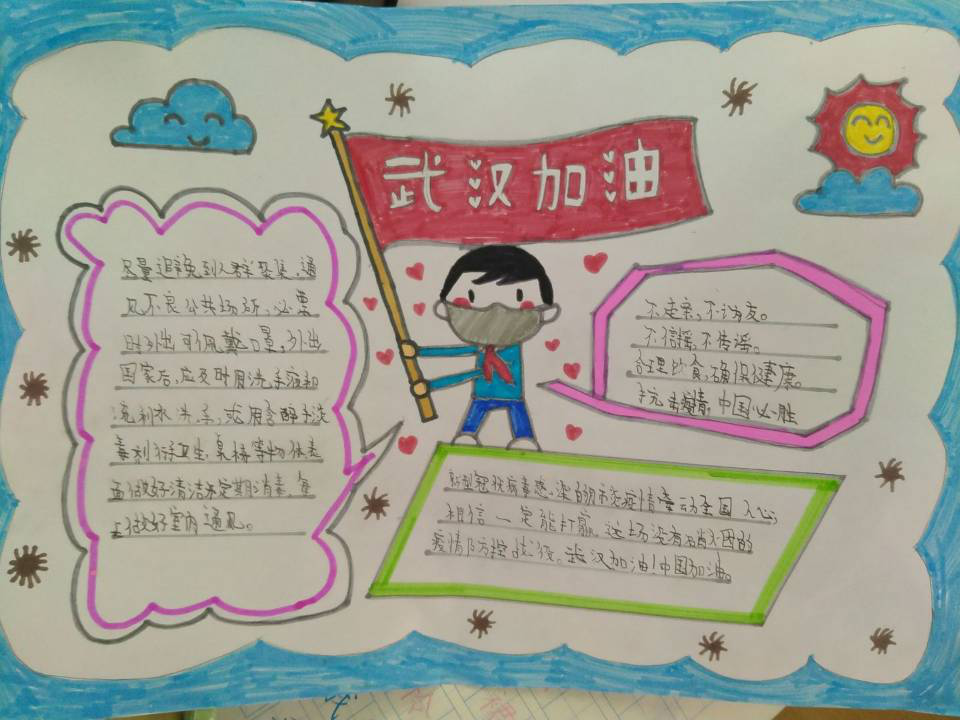 武汉加油
尽量避免到人群聚集、通
风不良公共场所，必要
时外出可佩戴口罩，外出
回家后，应及时用洗手液和
流利水洗手，或用含醇手消
毒剂行卫生，桌椅等物体表
面做好清洁和定期消毒，每
天做好室内通风。
不走亲，不访友。
不信谣，不传谣。
合理饮食，确保健康。
抗击疫情，中国必胜
新型冠状病毒感染的肺炎疫情牵动全国人心，
相信一定能打赢这场没有硝烟的
疫情防控战役。武汉加油！中国加油。